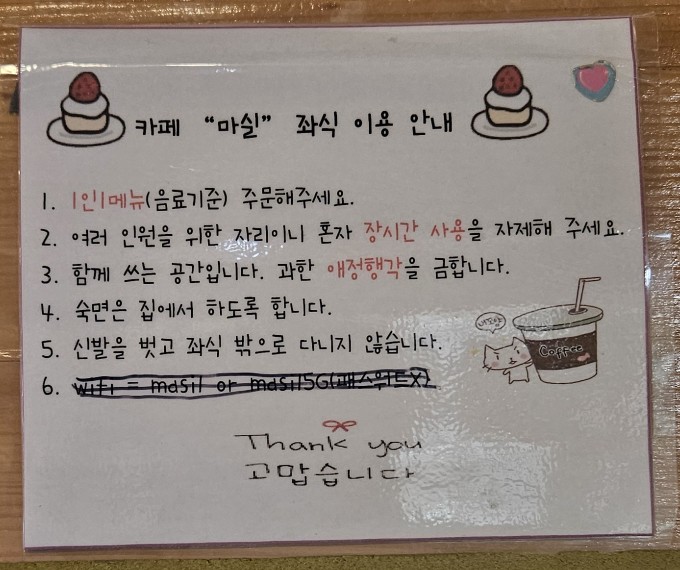 카페 “마실” 좌식 이용 안내
1. 1인1메뉴(음료기준) 주문해주세요.
2. 여러 인원을 위한 자리이니 혼자 장시간 사용을 자제해 주세요.
3. 함께 쓰는 공간입니다. 과한 애정행각을 금합니다.
4. 숙면은 집에서 하도록 합니다.
5. 신발을 벗고 좌식 밖으로 다니지 않습니다.
6. wifi = masil or masil5G(패스워드X)
Coffee
Thank you
고맙습니다